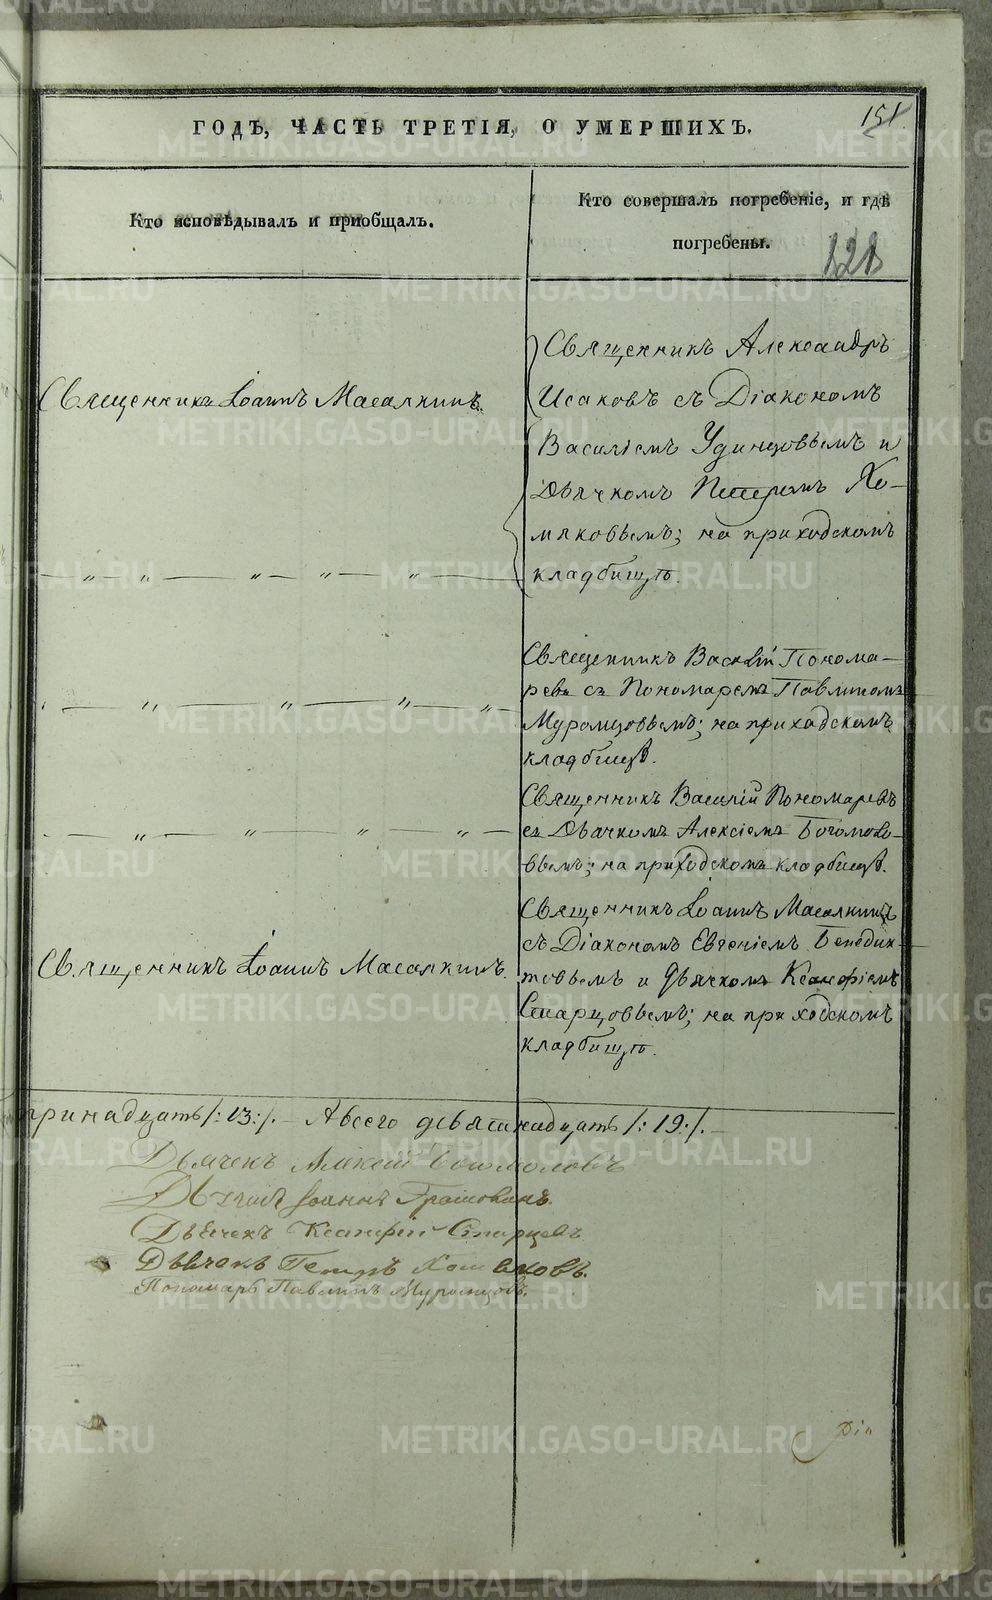 ГОДЪ, ЧАСТЬ ТРЕТІЯ, О УМЕРШИХЪ.
151
Кто исповѣдывалъ и пріобщалъ.
Кто совершалъ погребеніе, и гдѣ
погребены.
121
Священникъ Іоаннъ Масалкинъ.
Священникъ Александръ
Исаковъ съ Діакономъ
Василіемъ Удинцовымъ и
Дьячкомъ Петромъ Хо-
мяковымъ; на приходскомъ
кладбищѣ.
— „ — „ — „ — „ — „ —
Священникъ Василій Понома-
ревъ съ Пономаремъ Павлиномъ
Муромцовымъ; на приходскомъ
кладбищѣ.
— „ — „ — „ — „ —
Священникъ Василій Пономаревъ
съ Дьячкомъ Алексіемъ Богомоло-
вымъ; на приходскомъ кладбищѣ.
— „ — „ — „ — „ —
Священникъ Іоаннъ Масалкинъ
съ Діакономъ Евгеніемъ Бенедик-
товымъ и Дьячкомъ Ксанфіемъ
Старцовымъ; на приходскомъ
кладбищѣ.
Священникъ Іоаннъ Масалкинъ.
тринадцать /:13:/. — А всего девятнадцать /:19:/. —
Дьячекъ Алексій Богомоловъ
Дьячекъ Іоаннъ
Дьячекъ Ксанфій Старцевъ
Дьячекъ Петръ Хомяковъ.
Пономарь Павлинъ Муромцовъ.
Діа
METRIKI.GASO-URAL.RU